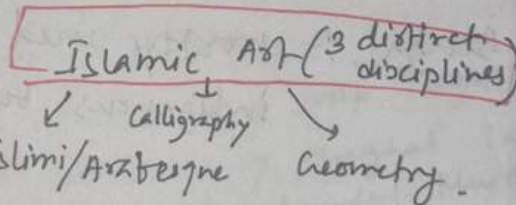 Islamic Art (3 distinct
disciplines)
Calligraphy
slimi/Arabesque Geometry.